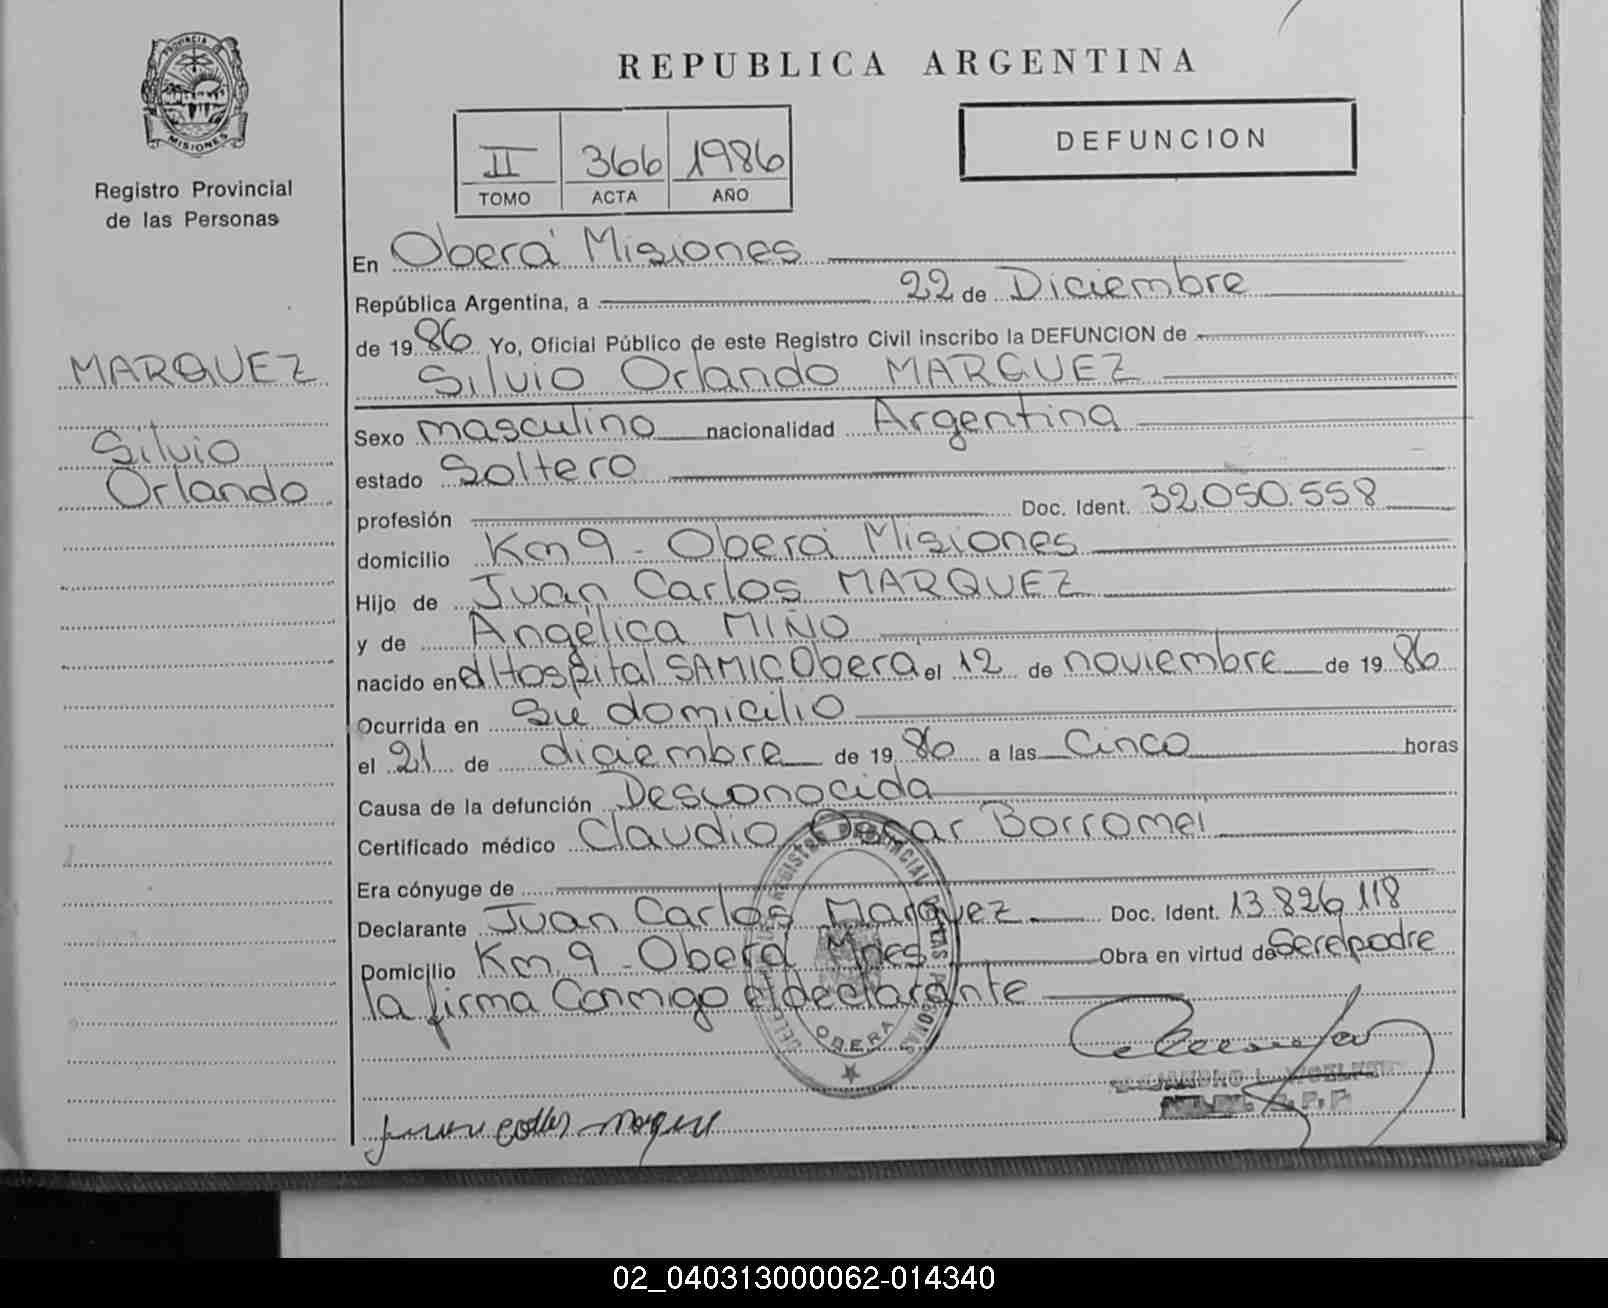 PROVINCIA DE
MISIONES
Registro Provincial
de las Personas
MARQUEZ
Silvio
Orlando
REPUBLICA ARGENTINA
II 366 1986
TOMO ACTA AÑO
DEFUNCION
En Oberá Misiones
República Argentina, a 22 de Diciembre
de 1986 Yo, Oficial Público de este Registro Civil inscribo la DEFUNCION de
Silvio Orlando MARQUEZ
Sexo masculino nacionalidad Argentina
estado Soltero
profesión Doc. Ident. 32.050.558
domicilio Km 9 - Oberá Misiones
Hijo de Juan Carlos MARQUEZ
y de Angélica MIÑO
nacido en el Hospital SAMIC Oberá el 12 de noviembre de 1986
Ocurrida en Su domicilio
el 21 de diciembre de 1986 a las Cinco horas
Causa de la defunción Desconocida
Certificado médico Claudio Oscar Borromei
Era cónyuge de
Declarante Juan Carlos Marquez Doc. Ident. 13.826.118
Domicilio Km 9 - Oberá Mnes Obra en virtud de Ser el padre
la firma Conmigo el declarante
OBERA
02_040313000062-014340